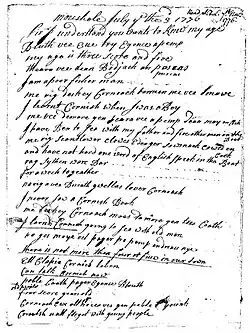 mousehole July the 3 1776
Sir I understand you wants to know my age
Bluth vee eue try Egence a pemp
my age is three score and five
vee dean Bodjack an poscas
I am a poor fisher man
me rig deskey Cornoack termen me vee mawe
I learnt Cornish when I was a Boy
me vee demore gen a vee a pemp dean moy en cock
I have been to sea with my father and five other men in the Boat
me rig clowes Eanger sowsnack cowes en cock
and have not heard one word of English spoke in the Boat
rag sythen ware bar
for a week together
na rig a vee gwellas lever Cornoack
I never saw a Cornish Book
me deskey Cornoack moas da more gen tees coath
I learnt Cornish going to sea with old men
na ges moye vel pager pe pemp en drea nye
there is not more than four or five in our town
Can talk Cornish now
poble coath pager egence blouth
old people four score years old
Cornoack ewe all ne cea ves yen poble younk
Cornish is all forgot with young people